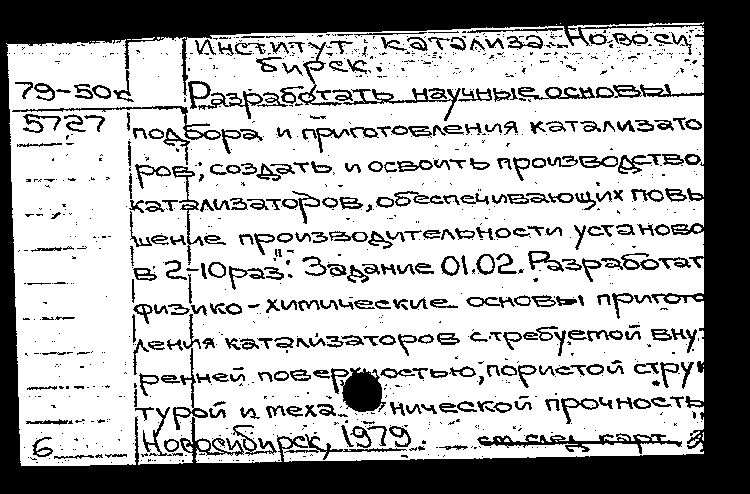 Институт катализа. Новоси
бирск.
79-50к Разработать научные основы
5727
подбора и приготовления катализато
ров; создать и освоить производство
катализаторов, обеспечивающих повы
шение производительности установо
в 2-10 раз". Задание 01.02. Разработат
физико-химические основы пригото
ления катализаторов с требуемой вну
ренней поверхностью, пористой струк
турой и механической прочность
6 Новосибирск, 1979. см. след. карт.